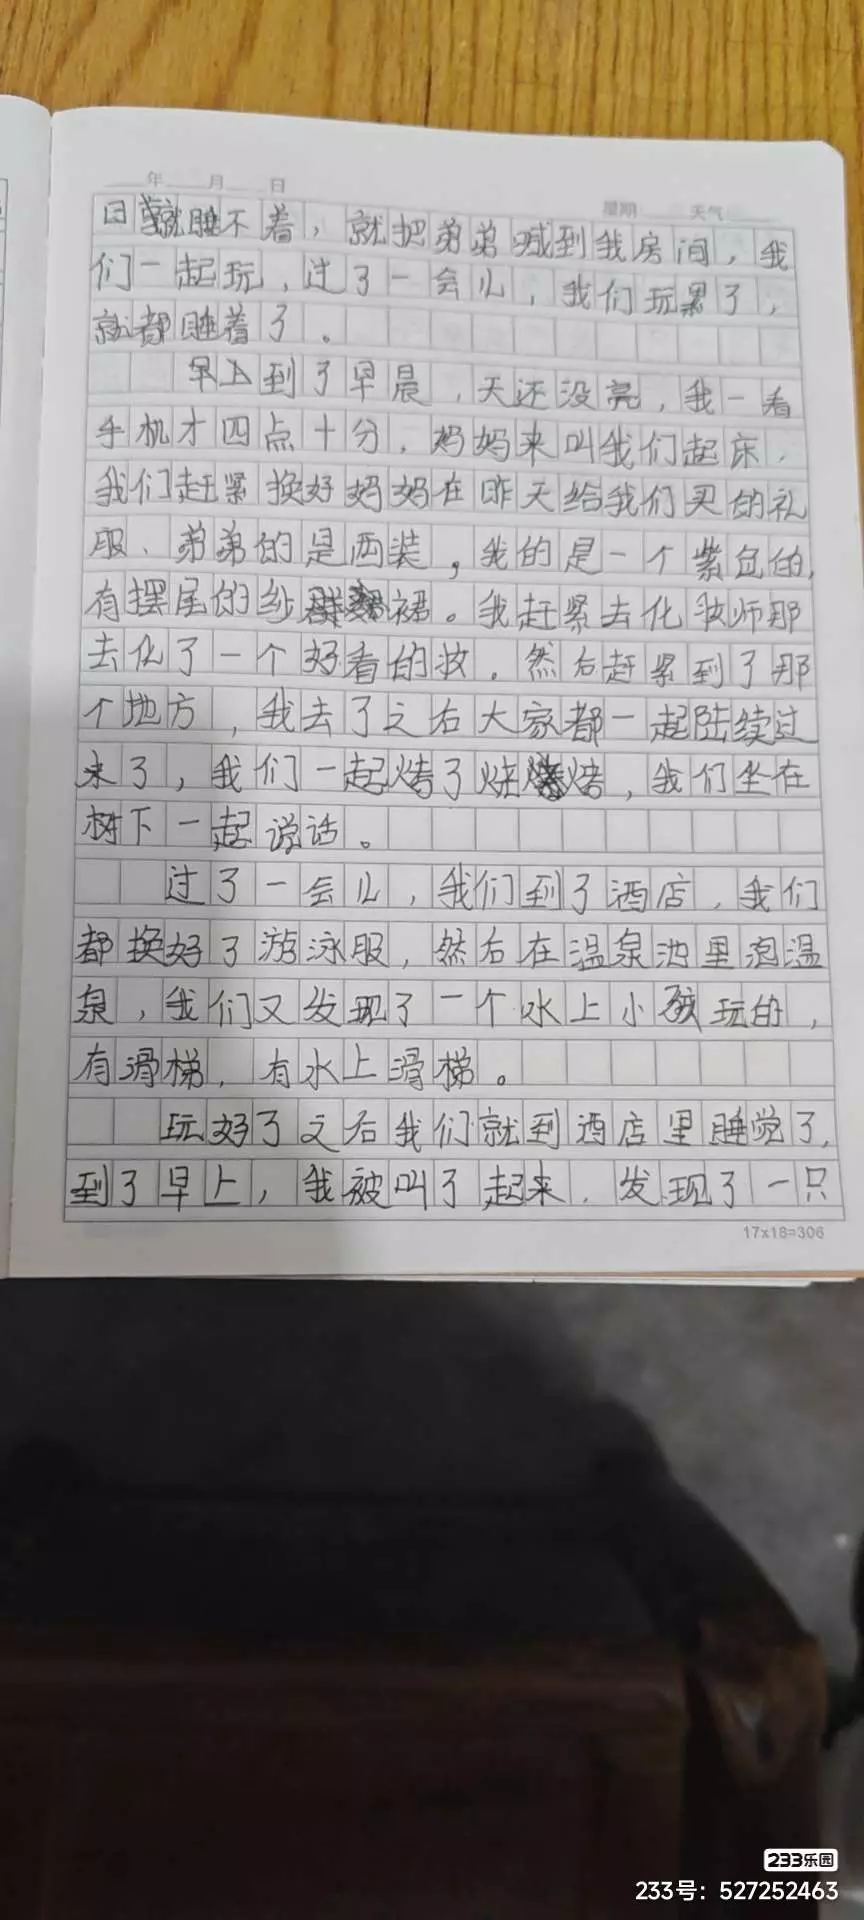 年 月 日
星期 天气
日就睡不着，就把弟弟喊到我房间，我
们一起玩，过了一会儿，我们玩累了，
就都睡着了。
早上到了早晨，天还没亮，我一看
手机才四点十分，妈妈来叫我们起床，
我们赶紧换好妈妈在昨天给我们买的礼
服、弟弟的是西装，我的是一个紫色的，
有摆尾的纱裙。我赶紧去化妆师那
去化了一个好看的妆，然后赶紧到了那
个地方，我去了之后大家都一起陆续过
来了，我们一起烤了烧烤，我们坐在
树下一起说话。
过了一会儿，我们到了酒店，我们
都换好了游泳服，然后在温泉池里泡温
泉，我们又发现了一个水上小孩玩的，
有滑梯，有水上滑梯。
玩好了之后我们就到酒店里睡觉了，
到了早上，我被叫了起来，发现了一只
17x18=306
233乐园
233号：527252463